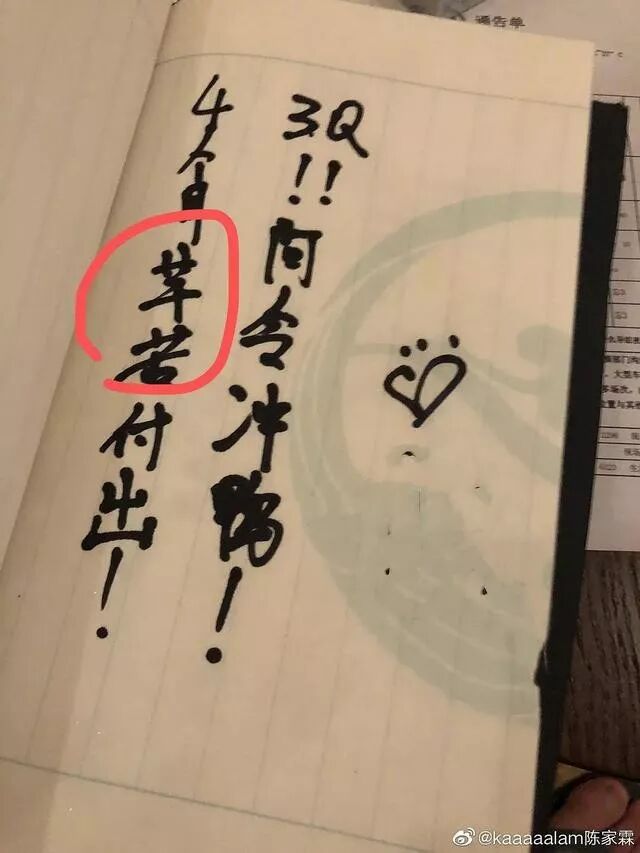 通告单
3Q!!阿令冲鸭!
4个月莘苦付出!
@kaaaaalam陈家霖